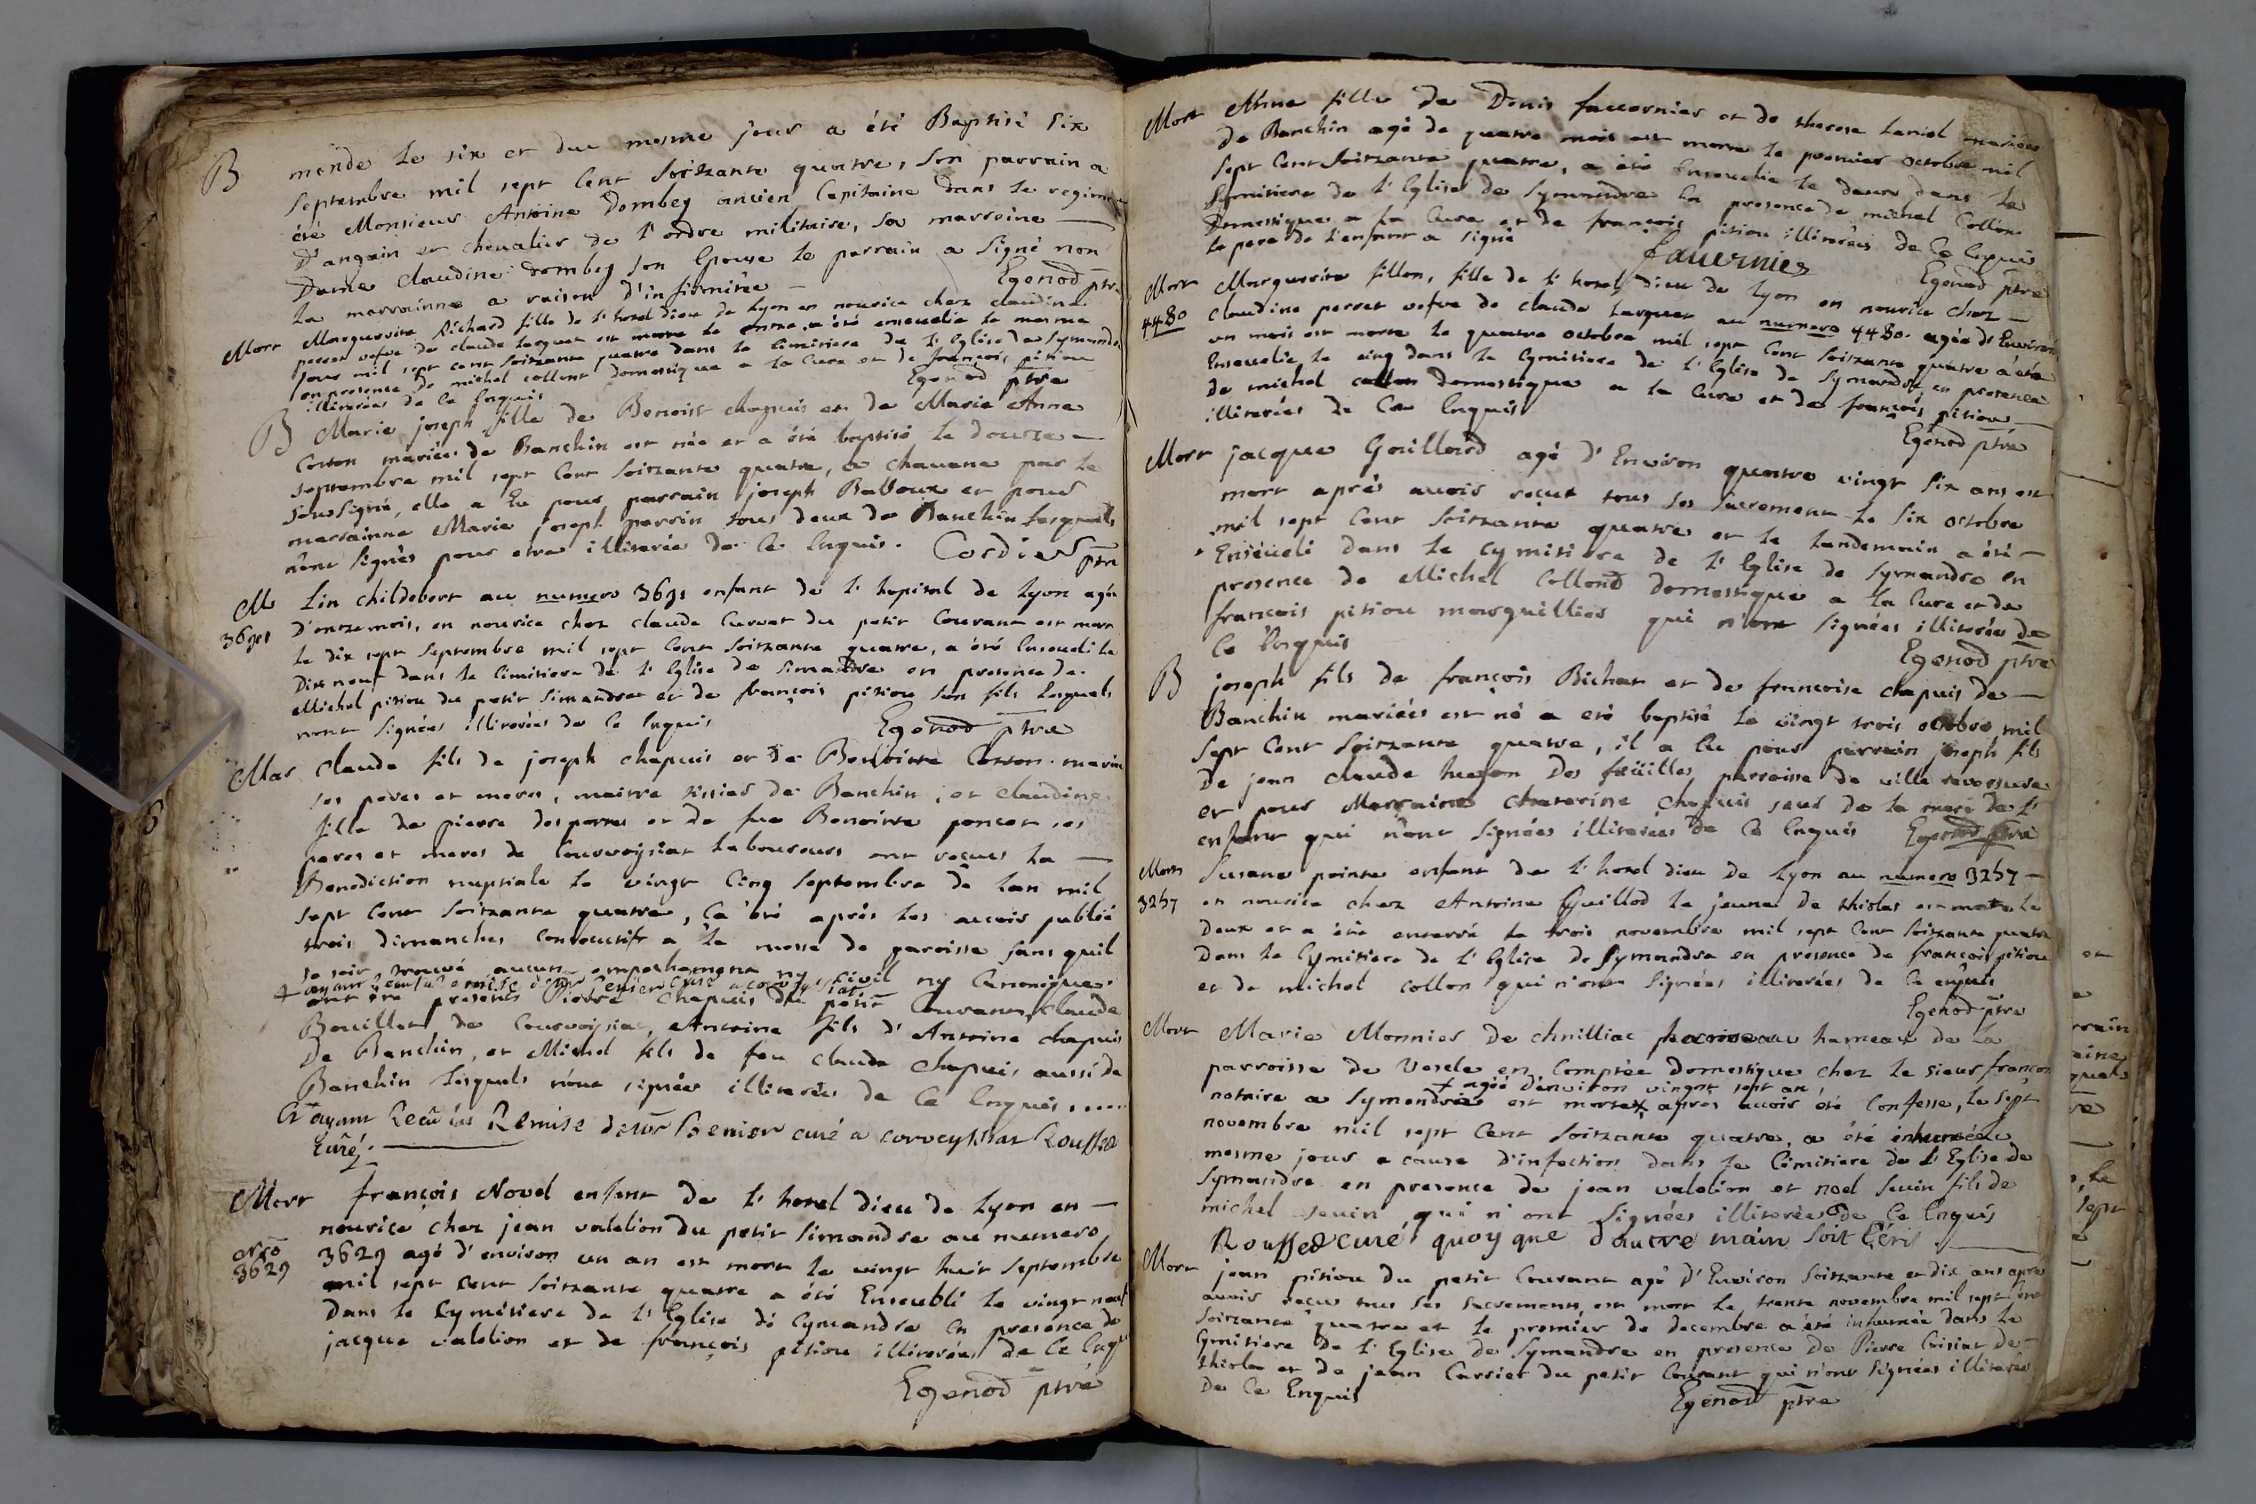 B mende le six et du mesme jour a été Baptisé six
septembre mil sept Cent soitzante quatre, son parrain a
été Monsieur Antoine Dombey ancien Capitaine dans le regime
D'angain et chevalier de l'ordre militaire, sa marraine
Dame claudine dombey son Epouse le parrain a signé non
la marrainne a raison d'infirmitée Egenod ptre
Mort Marguerite Richard fille de l'hotel dieu de Lyon en nourice chez claudine
perret vefve de claude Larquet est morte le onze, a été enseuelie le mesme
jour mil sept cent soitzante quatre dans le cimitiere de l'Eglise de Symandre
en presence de michel collont domestique a la Cure et de françois pitiou
illiterées de Ce Enquis Egenod ptre
B Marie joseph fille de Benoist chapuis et de Marie Anne
Corton mariées de Banchin est née et a été baptisé le douze
septembre mil sept Cent soitzante quatre, a chavane par le
sousigné, elle a Eu pour parrain joseph Balloux et pour
marrainne Marie joseph perrin tous deux de Banchin lesquels
nônt signés pour etre illiterée de Ce Enquis. Cordier ptre
M Lin childebert au numero 3691 enfant de l'hopital de Lyon agé
3691 D'ontzemois, en nourice chez claude Curvat du petit Couvant est mort
le dix sept septembre mil sept Cent soitzante quatre, a été Enseueli le
Dixneuf dans le Cimitiere de l'Eglise de Simandre en presence de
Michel pitiou du petit Simandre et de françois pitiou son fils lesquels
nont signées illiterées de Ce Enquis Egenod ptre
Mar claude fils de joseph chapuis et de Benoitte Corton mariés
ses peres et meres, maitre tissier de Banchin, et claudine
fille de pierre desperres et de fue Benoitte poncet ses
peres et meres de Courvoysiat laboureurs ont reçues la
Benediction nuptiale le vingt Cinq septembre de lan mil
sept Cent soitzante quatre, Ca été après les avoir publié
trois dimanches consecutifs a la messe de paroisse sans quil
se soit trouvé aucun empechement ny civil ny Canonique.
ont été presents Pierre Chapuis du petit Couvant, claude
Bouillet de Courvoysiat, Antoine fils d'Antoine chapuis
De Banchin, et Michel fils de feu claude Chapuis aussi de
Banchin lesquels nônt signées illiterées de Ce Enquis.....
Et ayant Reçu las Remise de sr Benier curé a corvoyssiat Rousset
Curé.
Mort françois Novel enfant de l'hotel dieu de Lyon en
nourice chez jean valebion du petit Simandre au numero
Nro 3629 3629 agé d'environ un an est mort le vingt huit septembre
mil sept cent soitzante quatre a été Enseubli le vingt neuf
Dans le Cymitiere de l'Eglise de Cymandre en presence de
jacque valebion et de françois pitiou illiterées de Ce Enqs
Egenod ptre
Mort Anne fille de Denis faucernier et de therese Laniel mariées
de Banchin agé de quatre mois est morte le premier octobre mil
sept Cent soitzante quatre, a été Enseuelie le deux dans le
Symitiere de l'Eglise de Symandre En presence de michel Collon
Domestique a la Cure et de françois pitiou illiterées de Ce Enquis
le pere de l'enfant a signé favernier Egenod ptre
Mort Marguerite fillon, fille de l'hotel dieu de Lyon en nourice chez
4480 claudine perret vefve de claude Larquet au numero 4480 agée d'Environ
un mois est morte le quatre octobre mil sept Cent soitzante quatre a été
Enseuelie le cinq dans le Cymitiere de l'Eglise de Symandre en presence
de michel collon domestique a la Cure et de françois pitiou
illiterées de Ce Enquis Egenod ptre
Mort jacque Gaillard agé d'Environ quatre vingt six ans est
mort aprés avoir reçut tous ses sacrement le six octobre
mil sept Cent soitzante quatre et le landemain a été
Enséueli dans le Cymitiere de l'Eglise de Symandre en
presence de Michel Collond Domestique a la Cure et de
françois pitiou marguillier qui n'ont signées illiterées de
Ce Enquis Egenod ptre
B joseph fils de françois Bichat et de francoise chapuis de
Banchin mariées est né a été baptisé le vingt trois octobre mil
sept Cent soitzante quatre, il a Eu pour parrain joseph fils
De jean claude hugon des feüilles parroisse de ville reversure
et pour Marraine Chaterine Chapuis seur de la mere de l'
enfant qui n'ont signées illiterées de Ce Enquis Egenod ptre
Mort Susane pointe enfant de l'hotel dieu de Lyon au numero 3257
3257 en nourice chez Antoine Guillod le jeune de thiolet est morte le
Deux et a été enterré le trois novembre mil sept Cent soitzante quatre
Dans le Cymitiere de l'Eglise de Symandre en presence de françois pitiou
et de michel collon qui n'ont signées illiterées de Ce enquis
Egenod ptre
Mort Marie Monnier De chnilliac hameau de la
parroisse de Vesele en Comptée Domestique chez le sieur françon
+ agéé d'environ vingt sept an
notaire a Symandre est morte+ aprés avoir été Confesse, le sept
novembre mil sept Cent soitzante quatre, a été inhumée le
mesme jour a cause d'infection dans le Cimitiere de l'Eglise de
Symandre en presence de jean valebion et noel sevin fils de
michel sevin, qui n'ont signées illiterées de Ce Enquis
Rousset curé, quoy que d'autre main soit Ecrit.
Mort jean pitiou du petit Couvant agé d'Environ soitzante et dix ans apres
avoir reçus tous ses sacrements, est mort le trente novembre mil sept Cent
soitzante quatre et le premier de decembre a été inhumée dans le
Cymitiere de l'Eglise de Symandre en presence de Pierre Cuisiat de
thiole et de jean Carrier du petit Couvant qui n'ont signées illiterées
De Ce Enquis Egenod ptre